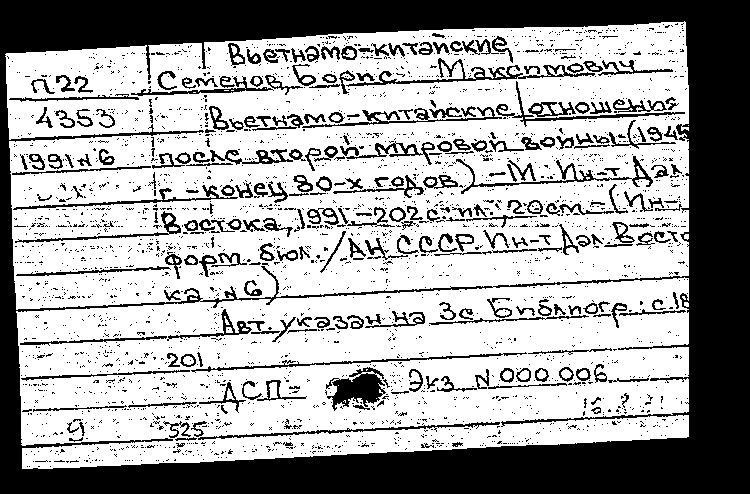 Вьетнамо-китайские
П22 Семенов, Борис Максимович
4353 Вьетнамо-китайские отношения
1991 №6 после второй мировой войны (1945
г. - конец 80-х годов) - М.: Ин-т Дал.
Востока, 1991. - 202 с.: ил.; 20 см. - (Ин-
форм. бюл. / АН СССР. Ин-т Дал. Восто
ка; №6)
Авт. указан на 3 с. Библиогр.: с. 18
201.
ДСП- Экз. № 000 006
9 525